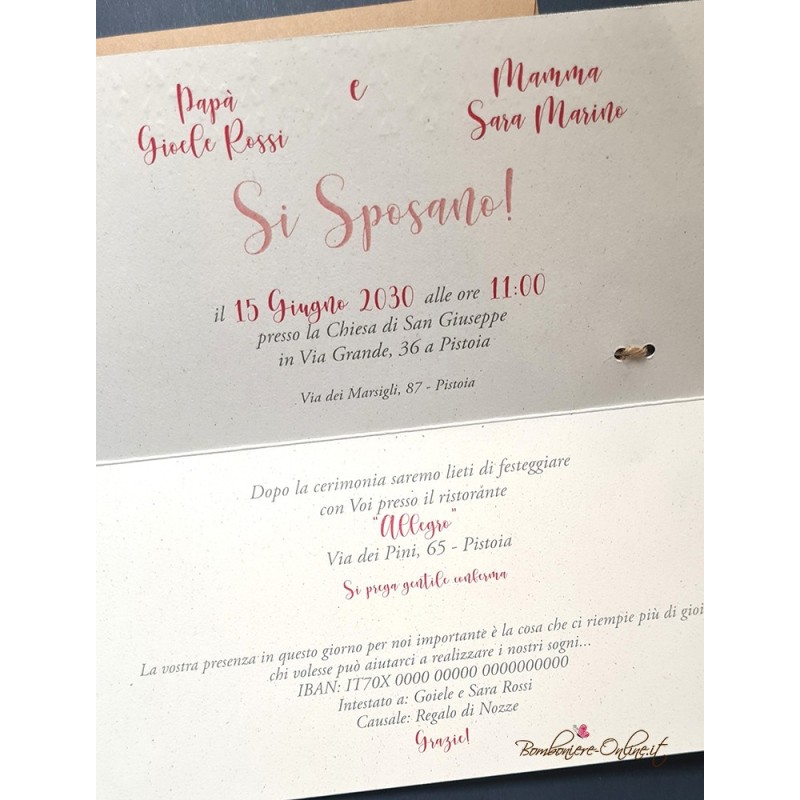 Papà e Mamma
Gioele Rossi Sara Marino
Si Sposano!
il 15 Giugno 2030 alle ore 11:00
presso la Chiesa di San Giuseppe
in Via Grande, 36 a Pistoia
Via dei Marsigli, 87 - Pistoia
Dopo la cerimonia saremo lieti di festeggiare
con Voi presso il ristorante
"Allegro"
Via dei Pini, 65 - Pistoia
Si prega gentile conferma
La vostra presenza in questo giorno per noi importante è la cosa che ci riempie più di gioi
chi volesse può aiutarci a realizzare i nostri sogni...
IBAN: IT70X 0000 00000 0000000000
Intestato a: Goiele e Sara Rossi
Causale: Regalo di Nozze
Grazie!
Bomboniere-Online.it